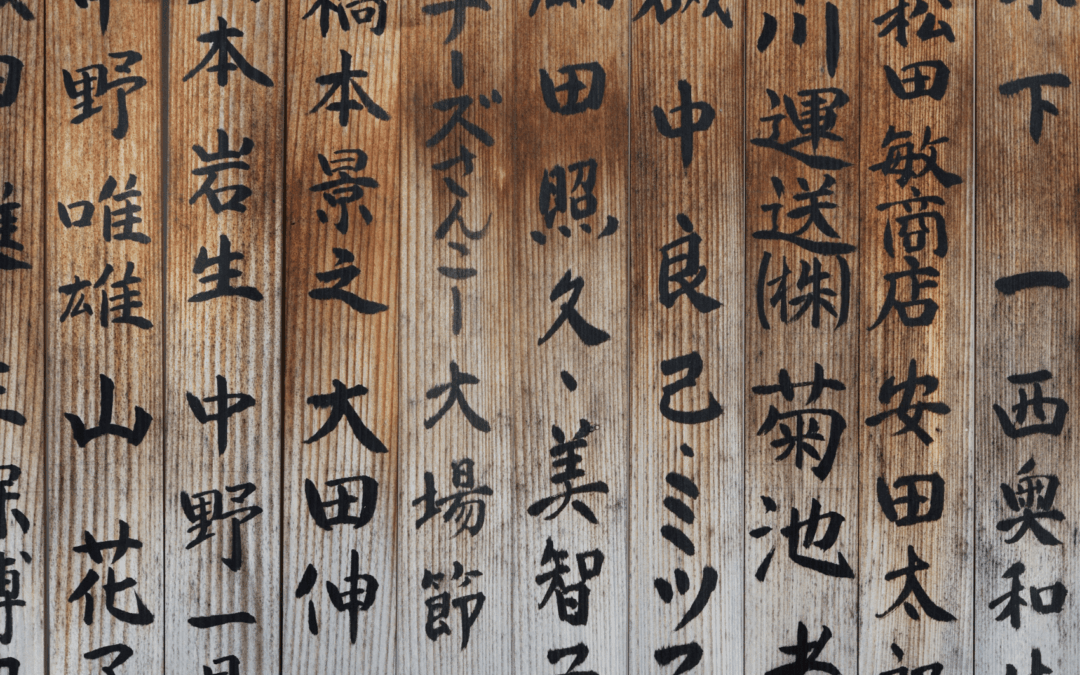 下 一 西奥和
松田敏商店 安田太郎
川運送(株) 菊池
中 良己・ミツ
田照久、美智子
ーズさんこー 大場節
橋本景之 大田伸
本岩生 中野一
中野唯雄 山 花子